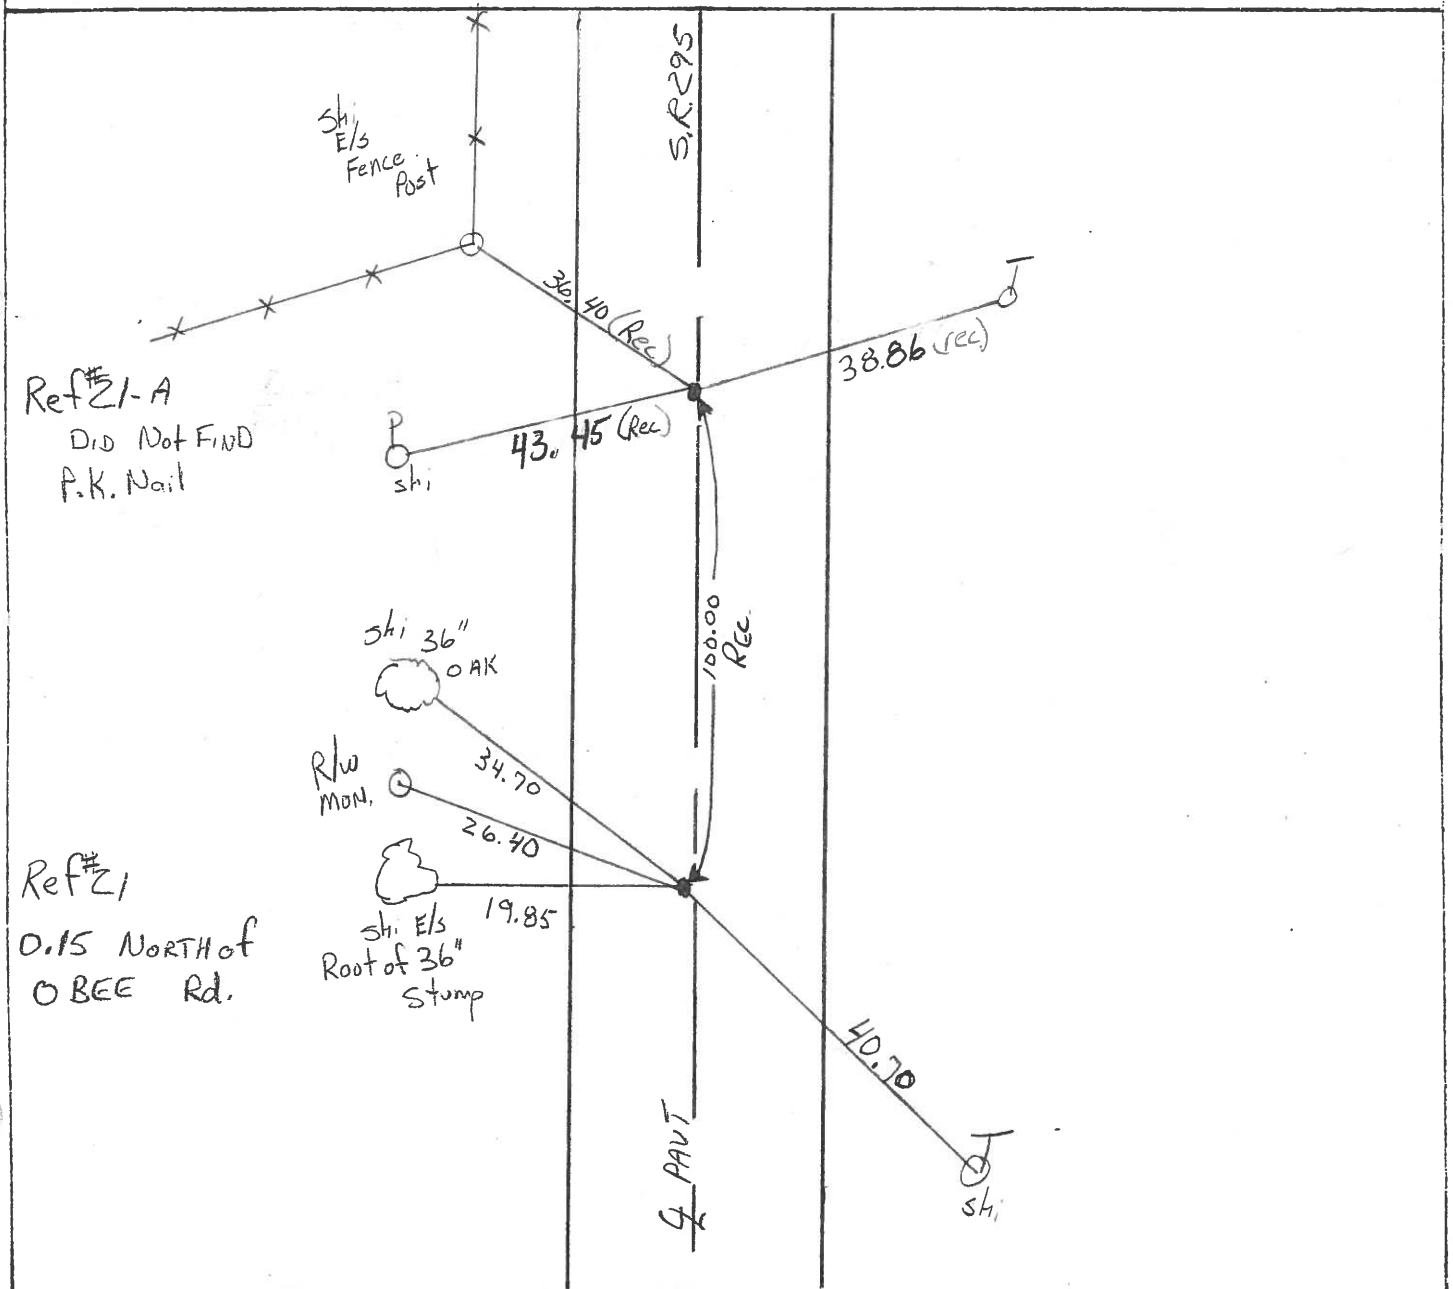 S.R.295
Shi
E/S
Fence
Post
36.40 (Rec)
T
38.86 (rec.)
Ref #21-A
DID Not FIND
P.K. Nail
P
shi
43.45 (Rec)
100.00
REC.
Shi 36"
OAK
34.70
R/W
MON.
26.40
Ref #21
0.15 NORTH of
OBEE Rd.
19.85
Shi E/S
Root of 36"
Stump
40.70
T
Shi
℄ PAVT